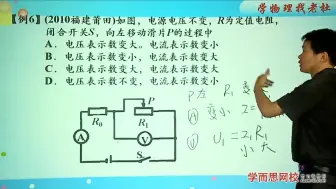 学物理找老杜
【例6】(2010福建莆田)如图，电源电压不变，R为定值电阻，
闭合开关S，向左移动滑片P的过程中
A．电压表示数变大，电流表示数变小
B．电压表示数变小，电流表示数变大
C．电压表示数变大，电流表示数变大
D．电压表示数不变，电流表示数变小
P左 R₁ 变
Ⓐ 变小 I=
P
R₀
R₁
Ⓥ U₁=I₁R₁
小 大
A
V
S
学而思网校